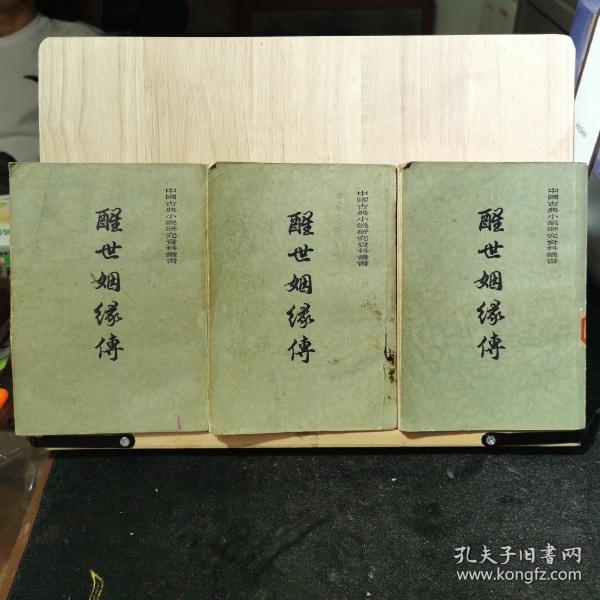 中國古典小說研究資料叢書
醒世姻緣傳
中國古典小說研究資料叢書
醒世姻緣傳
中國古典小說研究資料叢書
醒世姻緣傳
孔夫子旧书网
www.kongfz.com